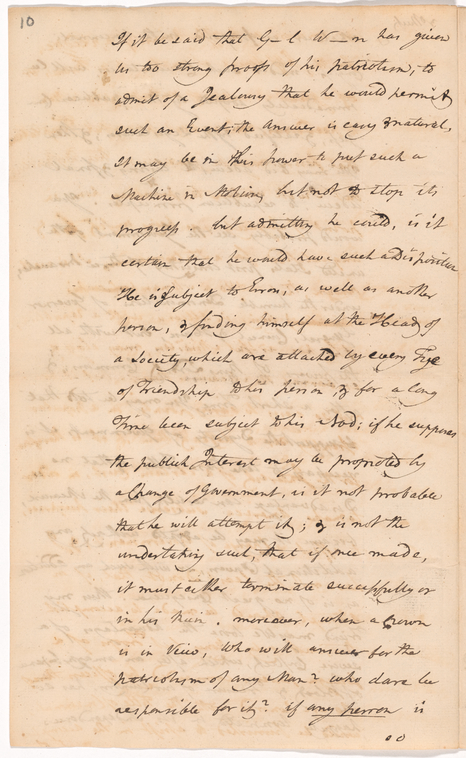 10
If it be said that G–l W–n has given
us too strong proofs of his patriotism, to
admit of a Jealousy that he would permit
such an Event; the answer is easy & natural,
It may be in his power to put such a
Machine in Motion, but not to stop its
progress. but admitting he could, is it
certain that he would have such a Disposition
He is subject to Error, as well as another
person, & finding himself at the Head of
a Society, which are attached by every Tye
of Friendship to his person, & for a long
Time been subject to his Nod; if he supposes
the publick Interest may be promoted by
a Change of Government, is it not probable
that he will attempt it; & is not the
undertaking such, that if once made,
it must either terminate successfully or
in his Ruin. moreover, when a Crown
is in View, Who will answer for the
patriotism of any Man? who dare be
responsible for it? if any person is